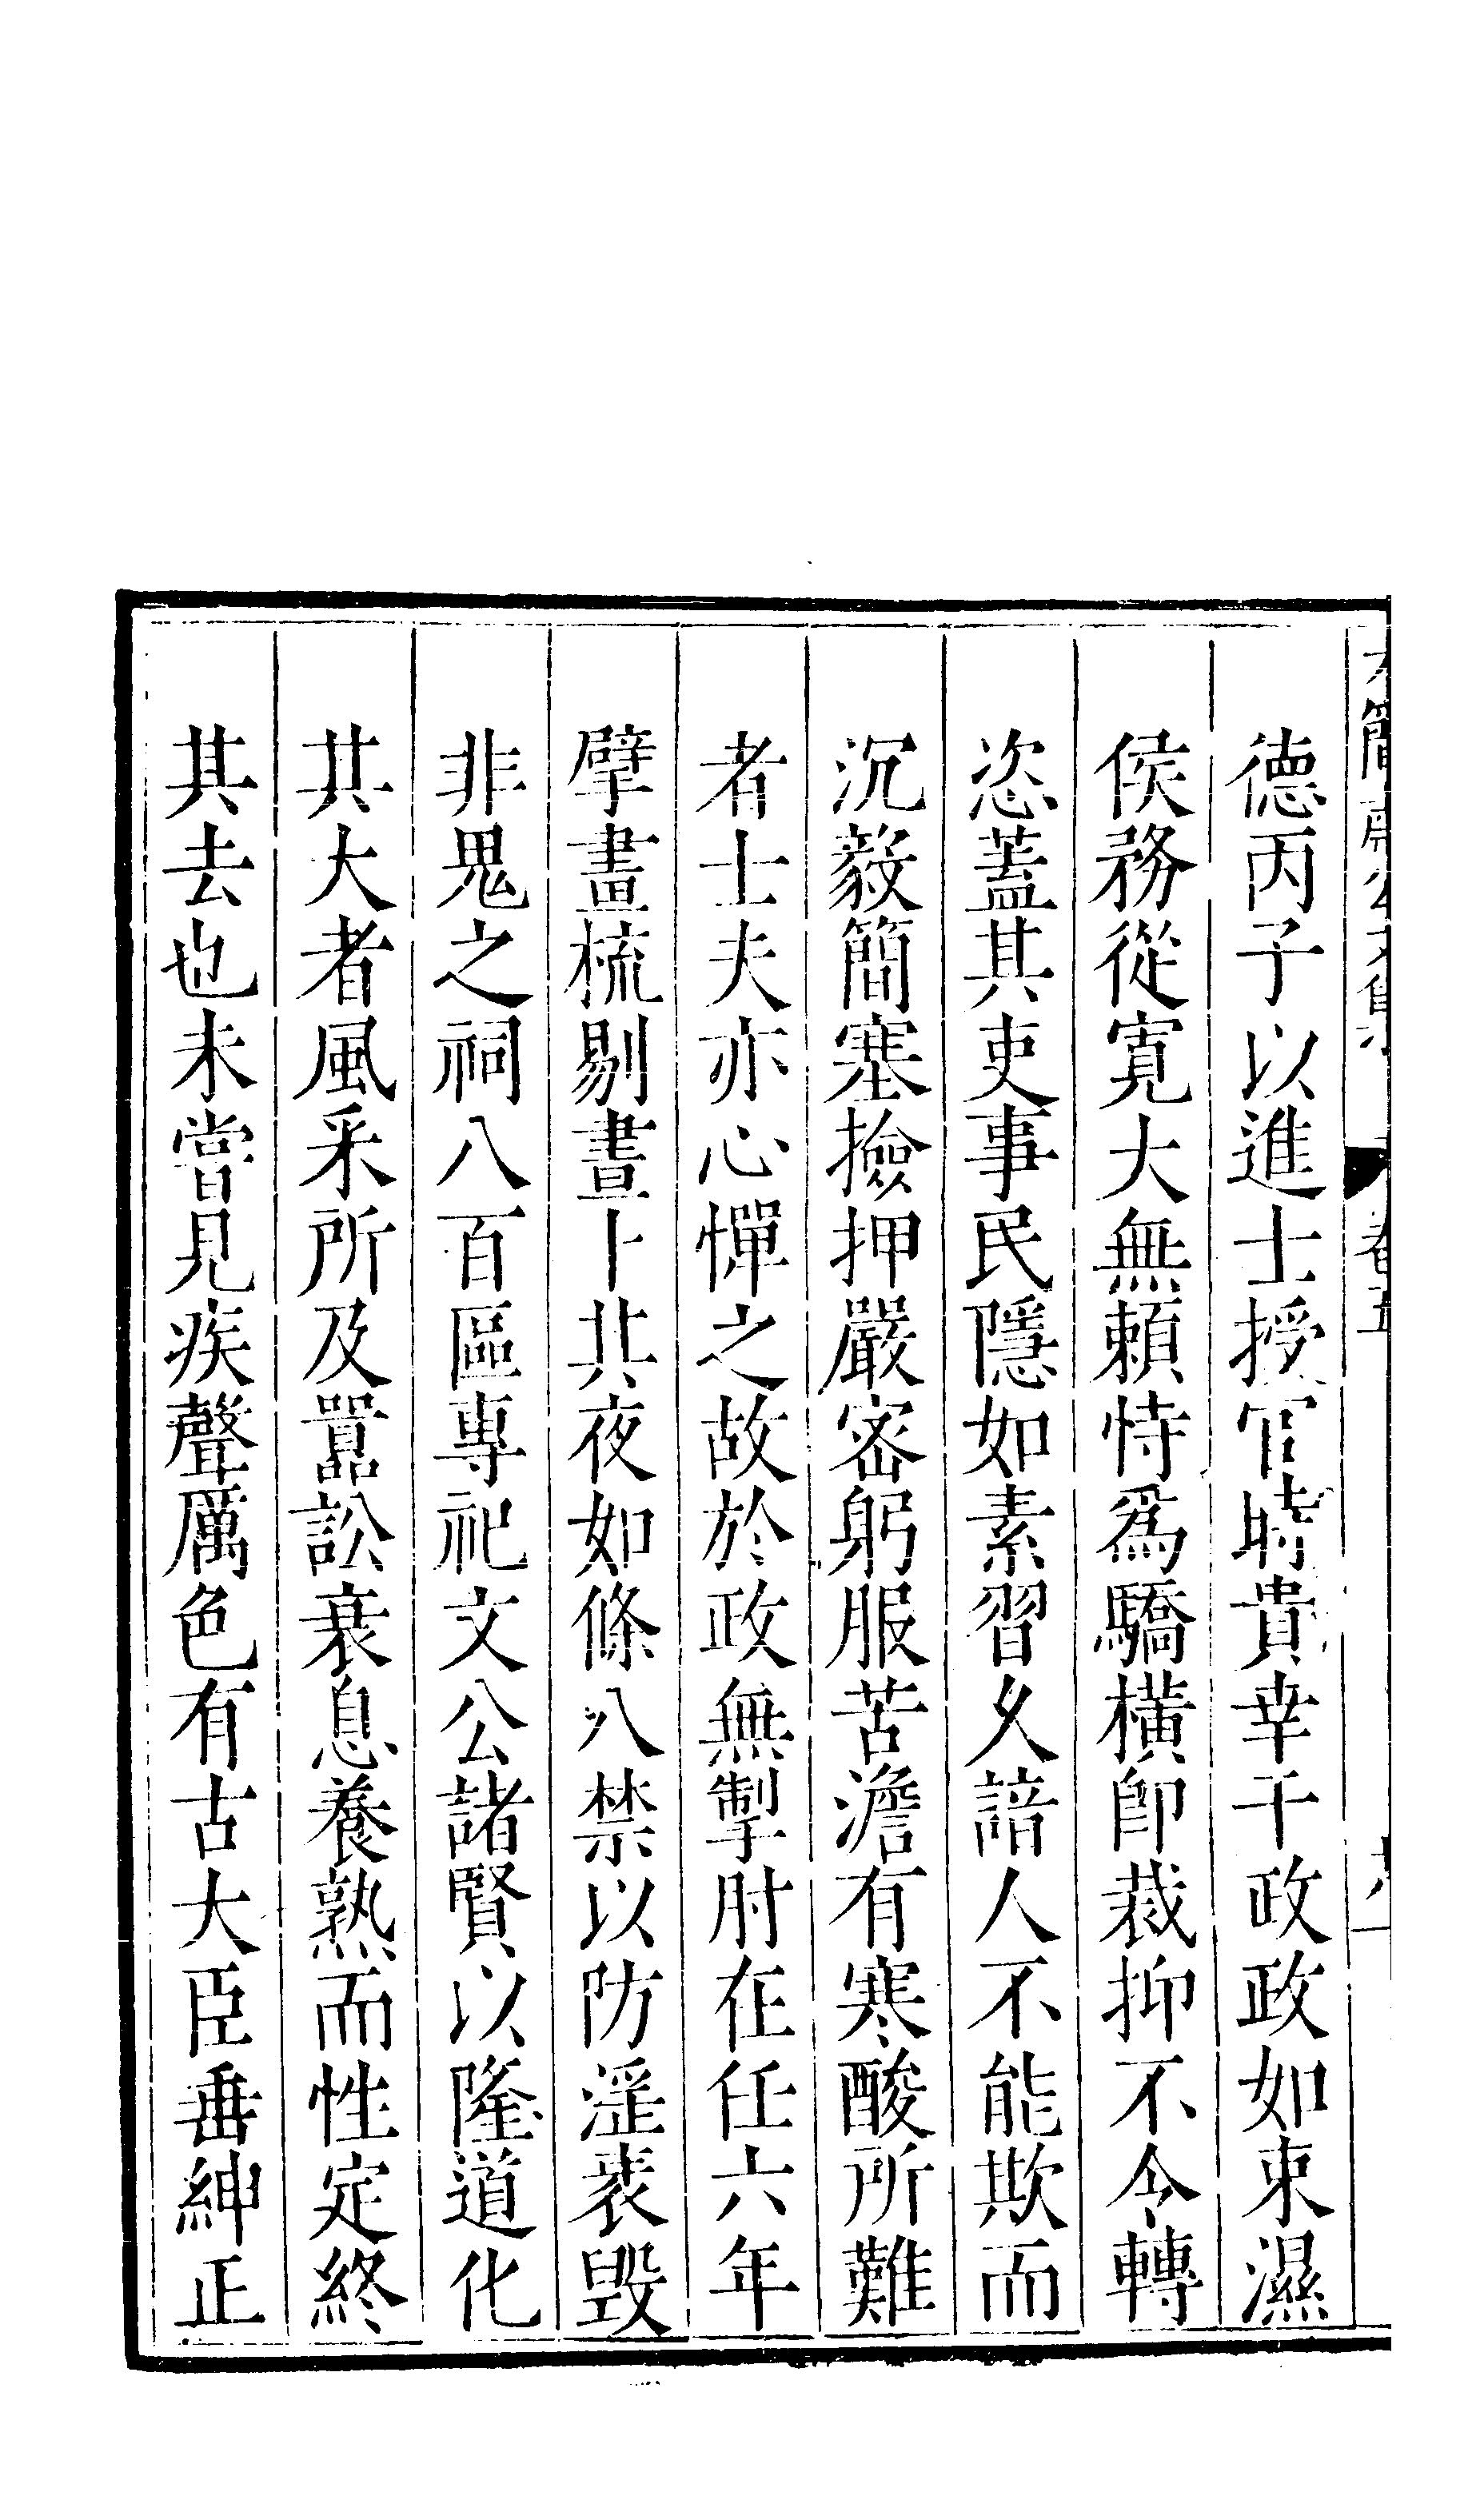 德丙子以進士授官時貴幸干政政如束濕
侯務從寬大無賴恃爲驕橫卽裁抑不令轉
恣蓋其吏事民隱如素習久諳人不能欺而
沉毅簡塞撿押嚴密躬服苦澹有寒酸所難
者士夫亦心憚之故於政無掣肘在任六年
擘畫梳剔晝卜其夜如條八禁以防淫裘毀
非鬼之祠八百區專祀文公諸賢以隆道化
其大者風采所及嚚訟衰息養熟而性定終
其去也未嘗見疾聲厲色有古大臣垂紳正